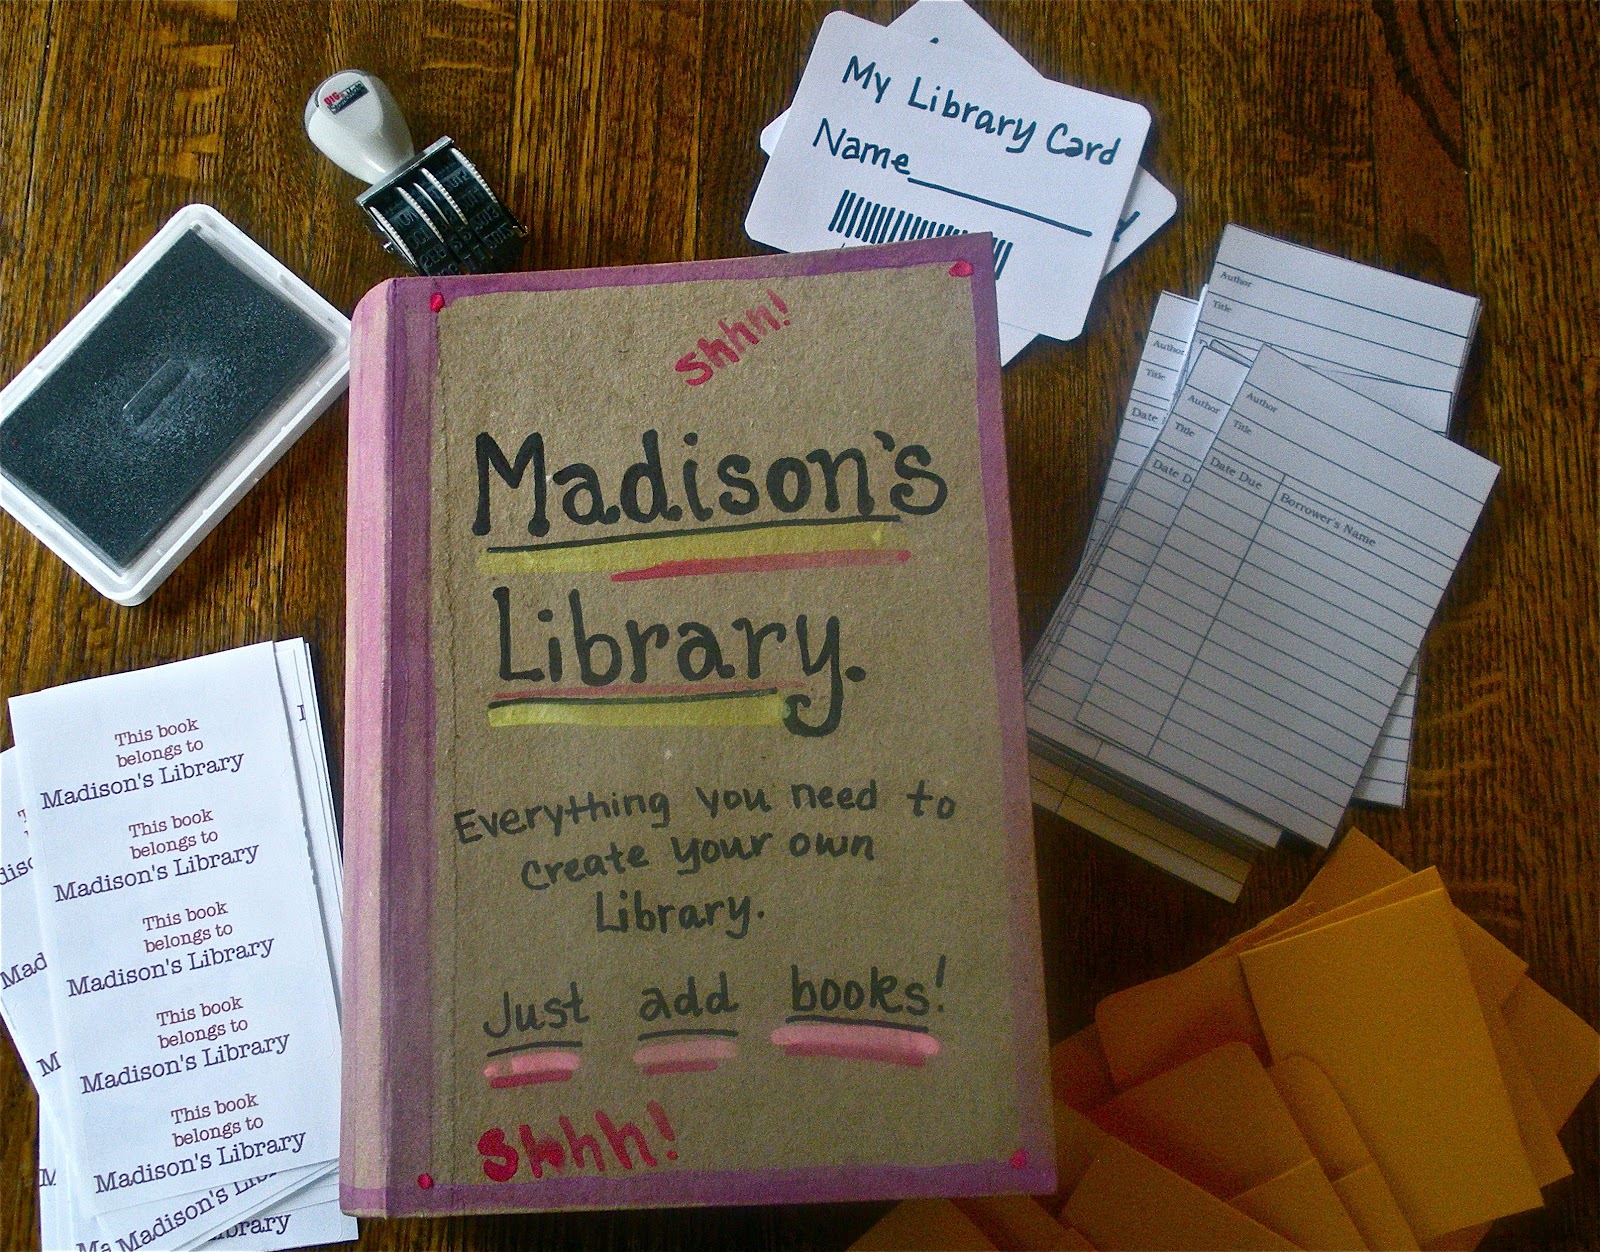 My Library Card
Name
shhh!
Madison's
Library.
Everything you need to
create your own
Library.
Just add books!
Shhh!
This book
belongs to
Madison's Library
This book
belongs to
Madison's Library
This book
belongs to
Madison's Library
This book
belongs to
Madison's Library
This book
belongs to
Madison's Library
Madison's
Library
Author
Title
Author
Title
Date
Author
Title
Date D
Author
Title
Date Due
Borrower's Name